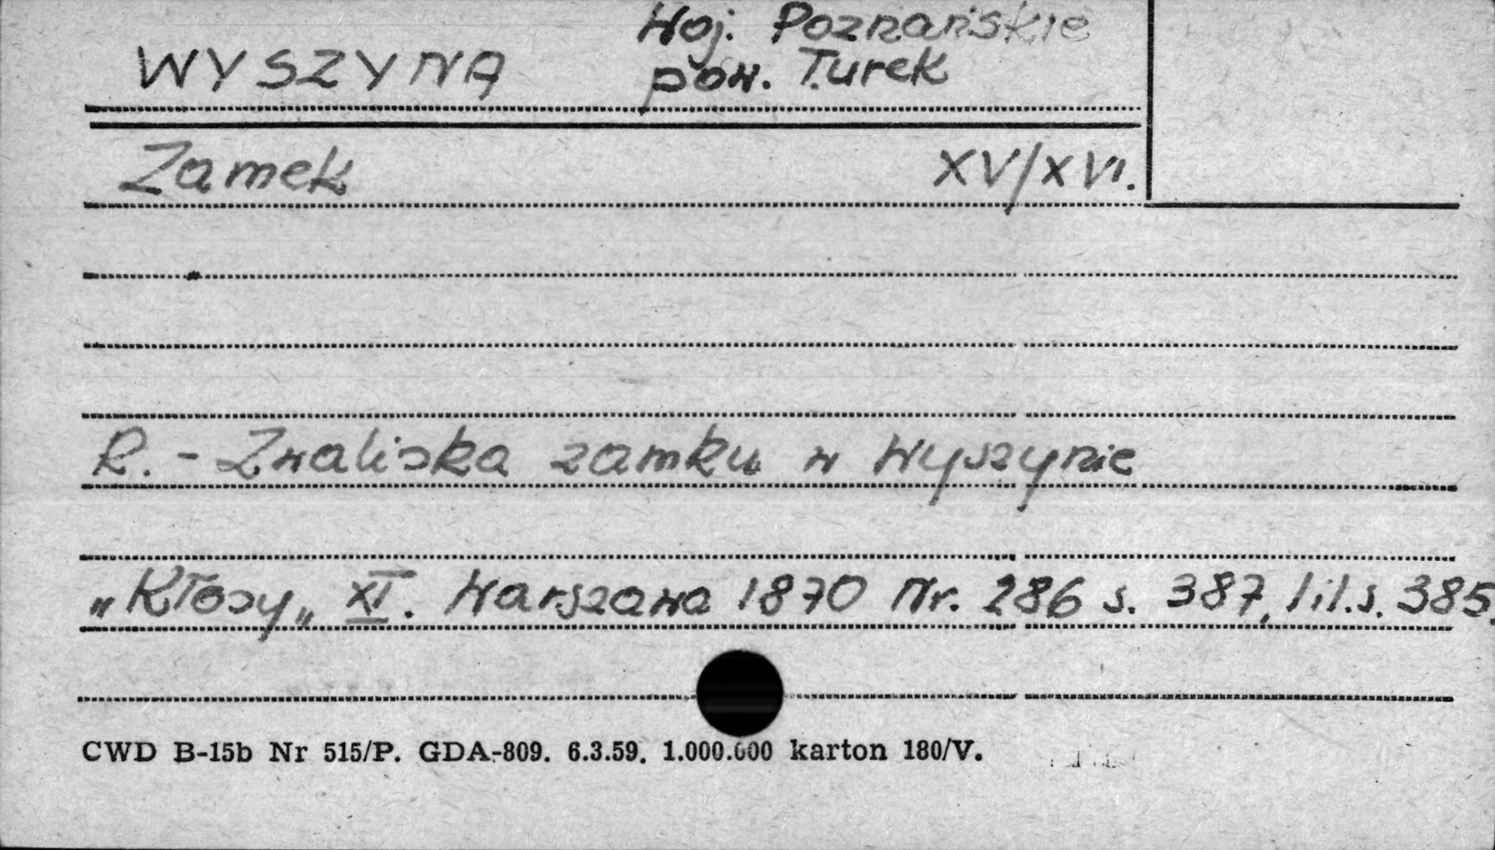 WYSZYNA
Woj. Poznańskie
pow. Turek
Zamek XV/XVI.
R. - Zwaliska zamku w Wyszynie
„Kłosy„ XI. Warszawa 1870 Nr. 286 s. 387, lil.s. 385.
CWD B-15b Nr 515/P. GDA-809. 6.3.59. 1.000.000 karton 180/V.